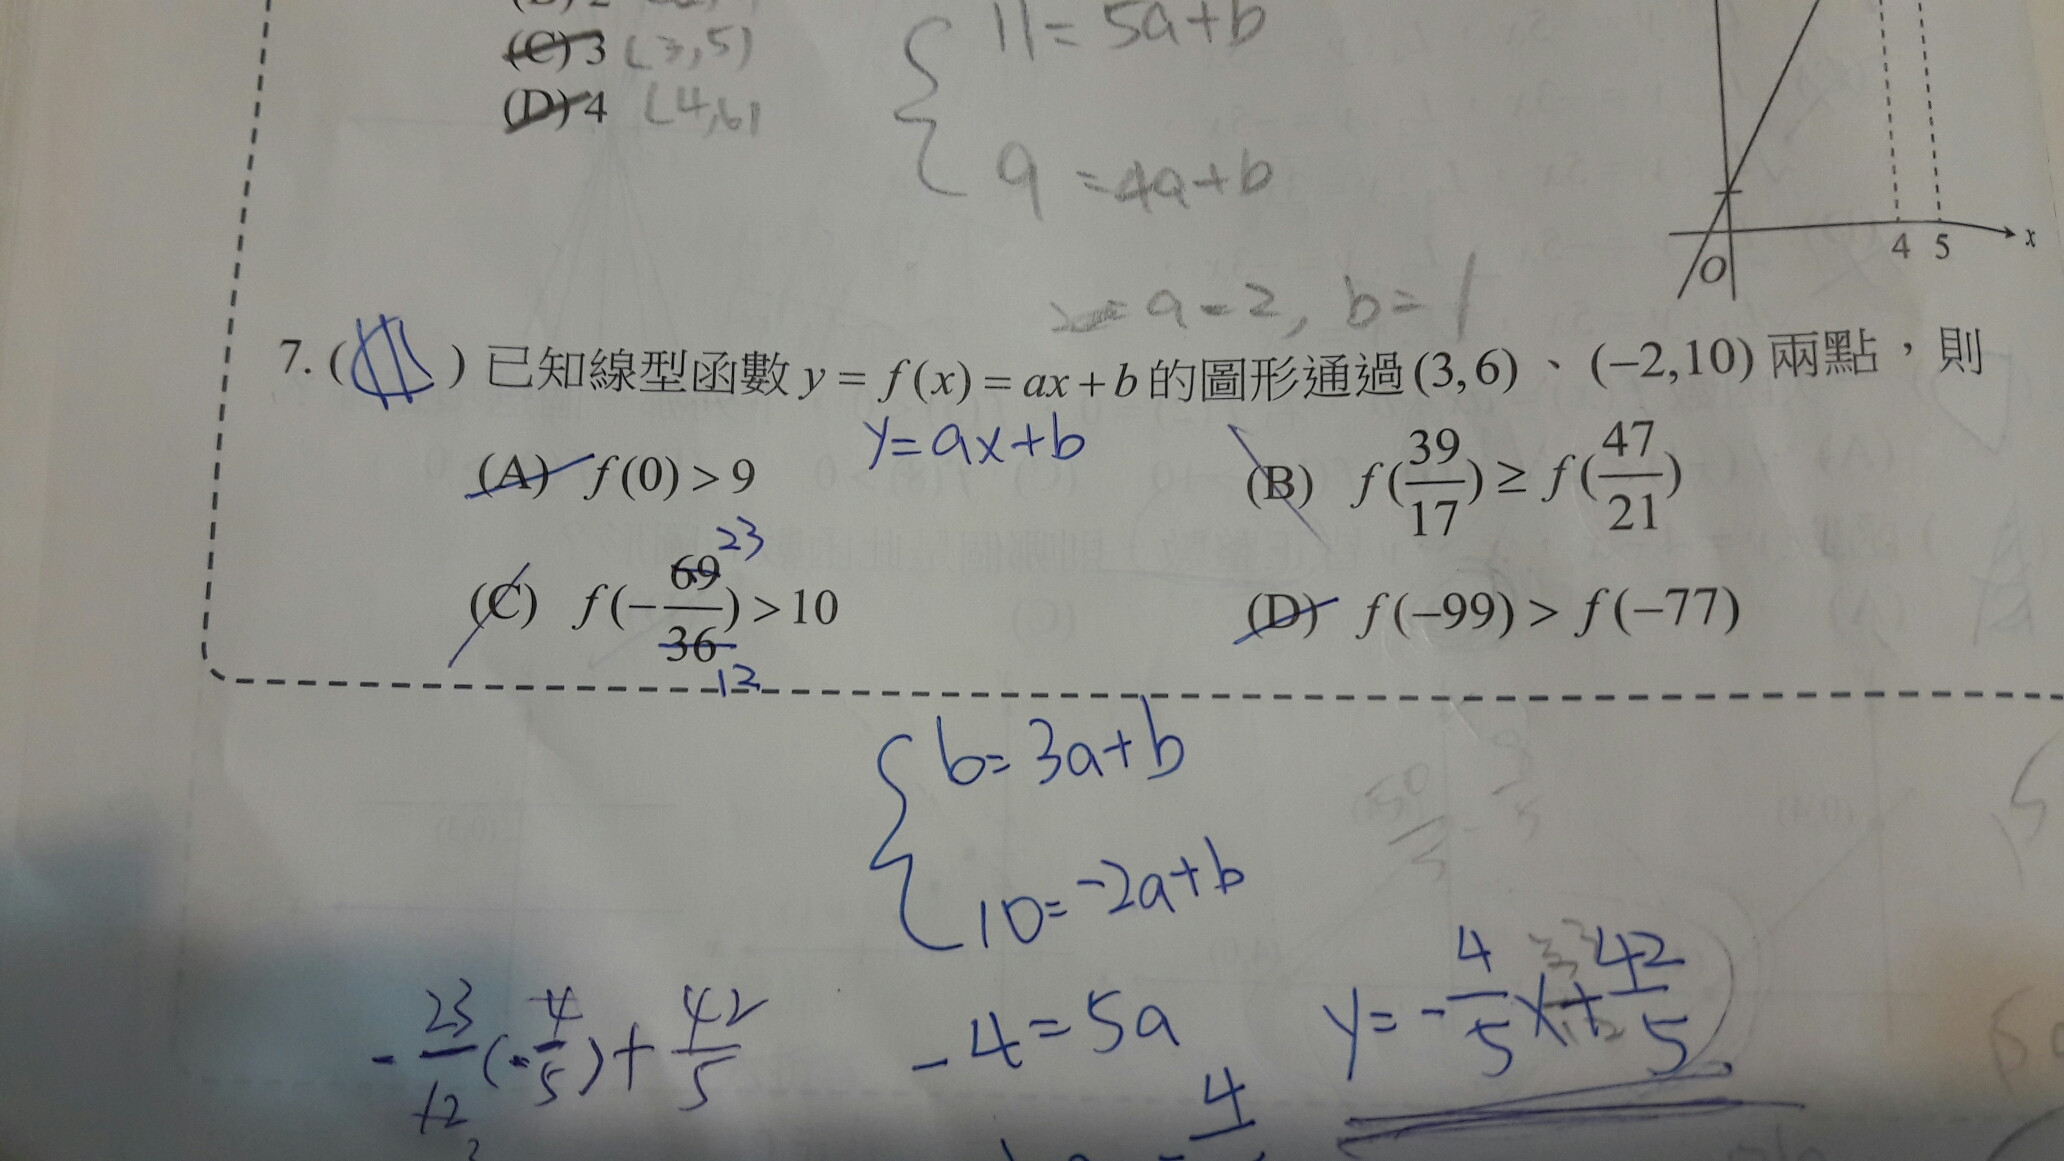 (C) 3 (3,5)
(D) 4 (4,6)
11 = 5a+b
9 = 4a+b
a=2, b=1
O 4 5 x
7. ( ) 已知線型函數 y = f(x) = ax + b 的圖形通過 (3,6)、(−2,10) 兩點，則
y=ax+b
(A) f(0) > 9 (B) f(39/17) ≥ f(47/21)
23
(C) f(−69/36) > 10 (D) f(−99) > f(−77)
12
6=3a+b
10=-2a+b
-23/12(-4/5)+42/5 -4=5a y=-4/5x+42/5
4